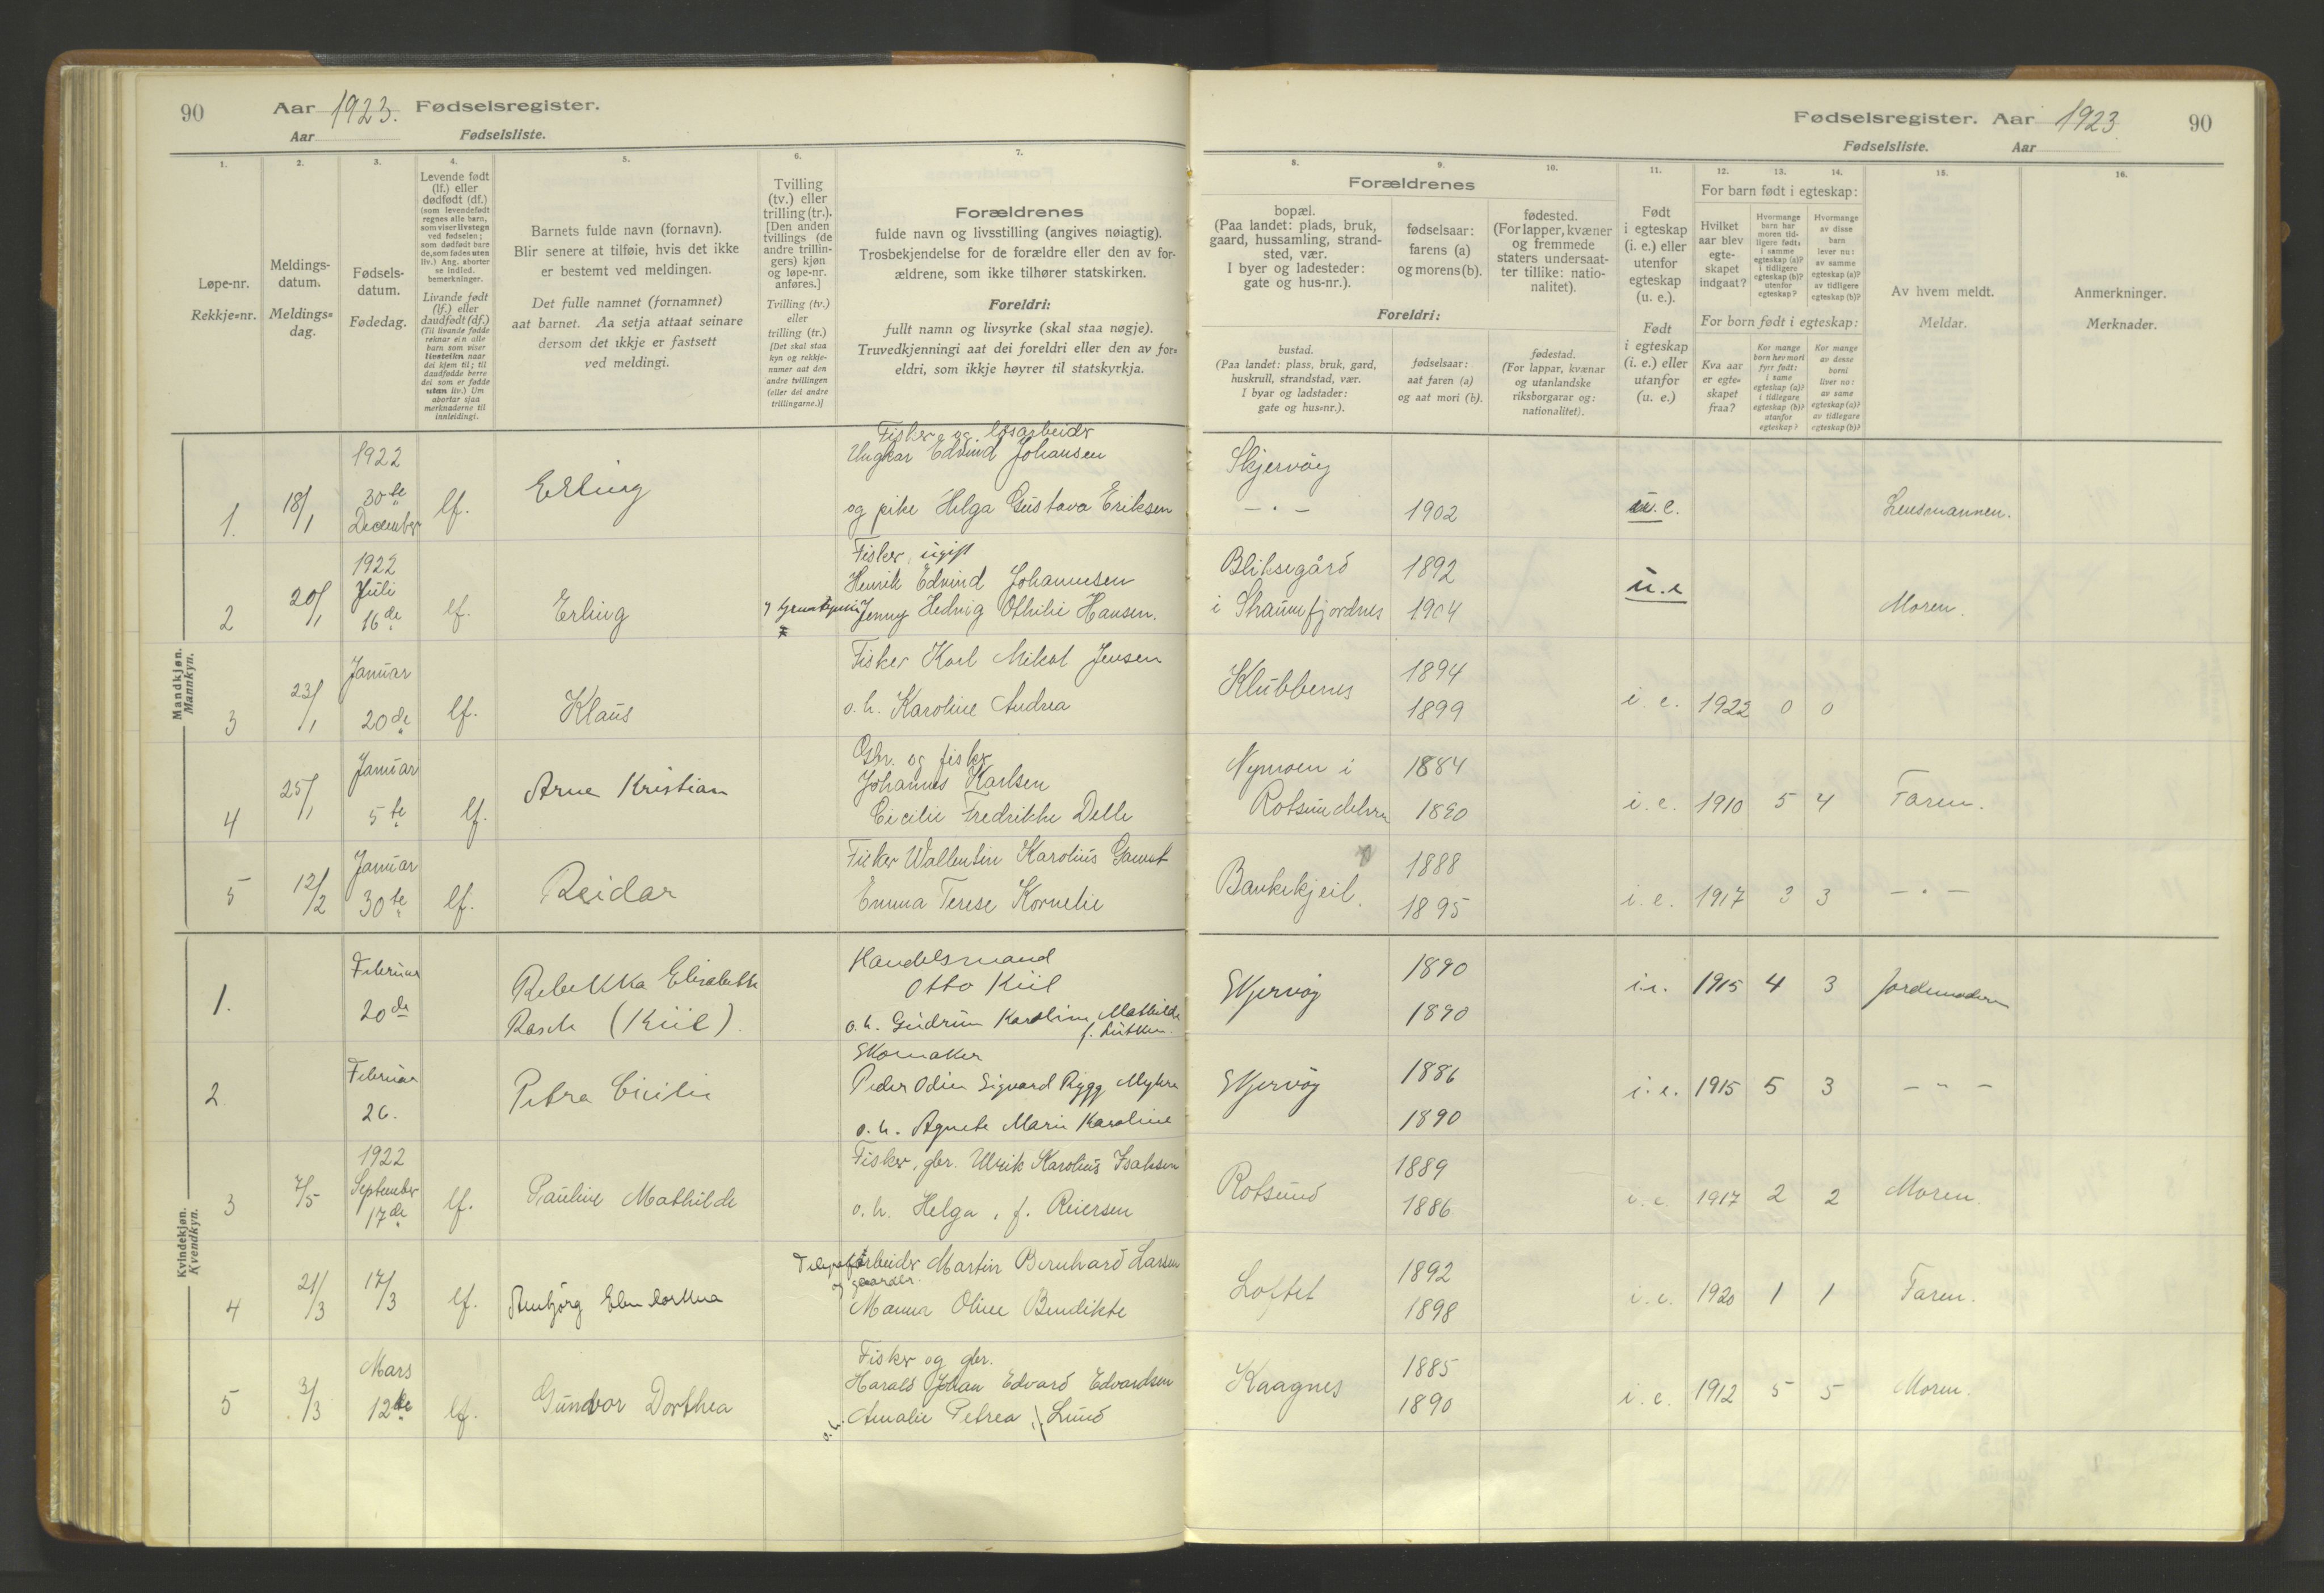 90 Aar 1923. Fødselsregister.
Aar Fødselsliste.
1. 2. 3. 4. 5. 6. 7.
Løpe-nr.
Rekkje=nr.
Meldings-
datum.
Meldings=
dag.
Fødsels-
datum.
Fødedag.
Levende født
(lf.) eller
dødfødt (df.)
(som levendefødt
regnes alle barn,
som viser livstegn
ved fødselen;
som dødfødt bare
de, som fødes uten
liv.) Ang. aborter
se indled.
bemerkninger.
Livande født
(lf.) eller
daudfødt (df.)
(Til livande fødde
reknar ein alle
barn som viser
livsteikn naar
dei kjem til; til
daudfødde berre
dei som er fødde
utan liv.) Um
abortar sjaa
merknaderne til
innleidingi.
Barnets fulde navn (fornavn).
Blir senere at tilføie, hvis det ikke
er bestemt ved meldingen.
Det fulle namnet (fornamnet)
aat barnet. Aa setja attaat seinare
dersom det ikkje er fastsett
ved meldingi.
Tvilling
(tv.) eller
trilling (tr.).
[Den anden
tvillings (de
andre trillin-
gers) kjøn
og løpe-nr.
anføres.]
Tvilling (tv.)
eller
trilling (tr.)
[Det skal staa
kyn og rekkje-
numer aat den
andre tvillingen
(eller dei andre
trillingarne.)]
Forældrenes
fulde navn og livsstilling (angives nøiagtig).
Trosbekjendelse for de forældre eller den av for-
ældrene, som ikke tilhører statskirken.
Foreldri:
fullt namn og livsyrke (skal staa nøgje).
Truvedkjenningi aat dei foreldri eller den av for=
eldri, som ikkje høyrer til statskyrkja.
Mandkjøn.
Mannkyn.
1922
1. 18/1 30te December lf. Erling
Fisker og løsarbeider
Ungkar Edvind Johansen
og pike Helga Gustava Eriksen
1922
2 20/1 Juli 16de lf. Erling
Fisker, ugift
Henrik Edvind Johannesen
Jenny Hedvig Othilie Hansen.
3 23/1 Januar 20de lf. Klaus
Fisker Karl Mikal Jensen
o. h. Karoline Andrea
4 25/1 Januar 5te lf. Arne Kristian
Gbr. og fisker
Johannes Karlsen
Cicilie Fredrikke Delle
5 12/2 Januar 30te lf. Reidar
Fisker Wallentin Karolius Gamst
Emma Terese Kornelie
Kvindekjøn.
Kvendkyn.
1. Februar 20de
Rebekka Elisabeth
Rasch (Kiil).
Handelsmand
Otto Kiil
o. h. Gudrun Karoline Mathilde
2. Februar 26. Petra Cicilie
Skomaker
Peder Odin Sigvard Rygg Myhre
o. h. Agnete Marie Karoline
1922
3 7/5 September 17de lf. Pauline Mathilde
Fisker, gbr. Ulrik Karolius Isaksen
o. h. Helga, f. Reiersen
4 21/3 17/3 lf.
arbeider Martin Bernhard Larsen
Manna Oline Bendikte
5 3/3 Mars 12te lf. Gundvor Dorthea
Fisker og gbr.
Harald Johan Edvard Edvardsen
o. h. Amalie Petrea Lund
Fødselsregister. Aar 1923. 90
Fødselsliste. Aar
8. 9. 10. 11. 12. 13. 14. 15. 16.
Forældrenes
bopæl.
(Paa landet: plads, bruk,
gaard, hussamling, strand-
sted, vær.
I byer og ladesteder:
gate og hus-nr.).
fødselsaar:
farens (a)
og morens (b).
fødested.
(For lapper, kvæner
og fremmede
staters undersaat-
ter tillike: natio-
nalitet).
Foreldri:
bustad.
(Paa landet: plass, bruk, gard,
huskrull, strandstad, vær.
I byar og ladstader:
gate og hus=nr.).
fødselsaar:
aat faren (a)
og aat mori (b).
fødestad.
(For lappar, kvænar
og utanlandske
riksborgarar og:
nationalitet).
Født
i egteskap
(i. e.) eller
utenfor
egteskap
(u. e.).
Født
i egteskap
(i. e.) eller
utanfor
egteskap
(u. e.)
For barn født i egteskap:
Hvilket
aar blev
egte-
skapet
indgaat?
Hvormange
barn har
moren tid-
ligere født:
i samme
egteskap (a)?
i tidligere
egteskap (b)?
utenfor
egteskap?
Hvormange
av disse
barn
lever nu:
av samme
egteskap (a)?
av tidligere
egteskap (b)?
For born født i egteskap:
Kva aar
er egte=
skapet
fraa?
Kor mange
born hev mori
fyrr født:
i same
egteskap (a)?
i tidlegare
egteskap (b)?
utanfor
egteskap?
Kor mange
av desse
borni
liver no:
av same
egteskap (a)?
av tidlegare
egteskap (b)?
Av hvem meldt.
Meldar.
Anmerkninger.
Merknader.
Skjervøy
— " — 1902 u. e. Lensmannen.
Bliksegård 1892
i Straumfjordnes 1904 u. e Moren.
Klubbenes 1894
1899 i. e. 1922 0 0
Nymoen i 1884
1890 i. e. 1910 5 4 Faren.
1888
1895 i. e. 1917 3 3 — " —
Skjervøy 1890
1890 i. e. 1915 4 3 Jordemoderen
Skjervøy 1886
1890 i. e. 1915 5 3 — " —
Rotsund 1889
1886 i. e. 1917 2 2 Moren.
Loftet 1892
1898 i. e. 1920 1 1 Faren.
Kaagnes 1885
1890 i. e. 1912 5 5 Moren.